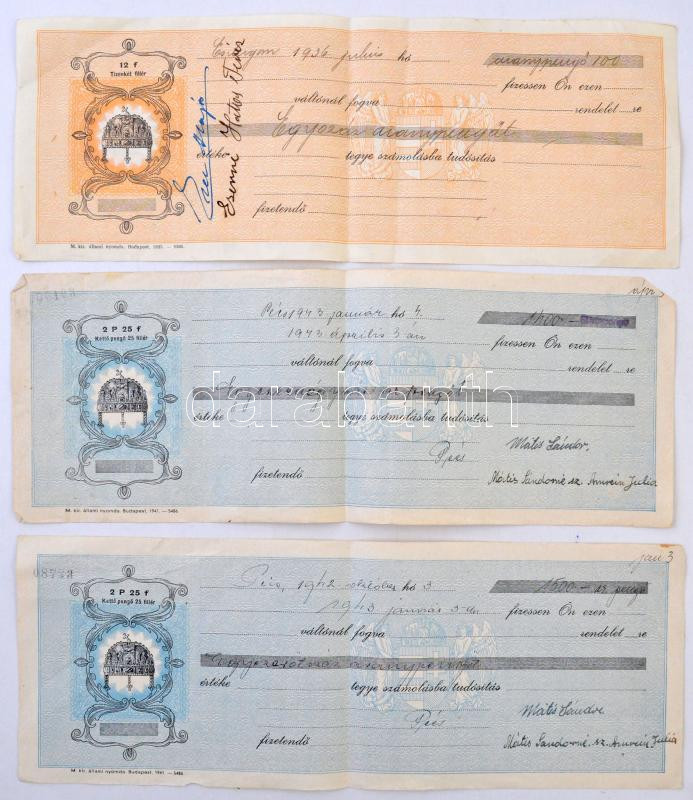 12 f
Tizenkét fillér
Esztergom 1936 július hó
aranypengő 100
fizessen Ön ezen
váltónál fogva rendelet re
Egyszáz aranypengőt
értéke tegye számolásba tudósítás
fizetendő
M. kir. állami nyomda. Budapest, 1935. —
2 P 25 f
Kettő pengő 25 fillér
Pécs 1943 január hó 4.
1400 —
1943 április 3 án fizessen Ön ezen
váltónál fogva rendelet re
értéke tegye számolásba tudósítás
Pécs
Mátis Sándor.
fizetendő
Mátis Sándorné sz. Amrein Julia
M. kir. állami nyomda. Budapest, 1941. — 5486.
darabanth
jan 3
2 P 25 f
Kettő pengő 25 fillér
Pécs, 1942 október hó 3
1500 — az pengő
1943 január 3 án fizessen Ön ezen
váltónál fogva rendelet re
Egyezerötszáz aranypengőt
értéke tegye számolásba tudósítás
Pécs
Mátis Sándor
fizetendő
Mátis Sándorné sz. Amrein Julia
M. kir. állami nyomda. Budapest, 1941. — 5486.